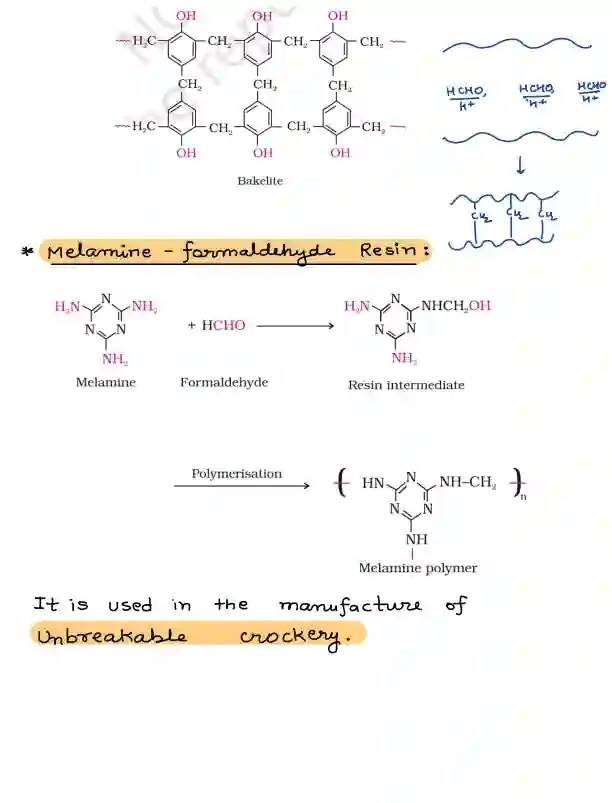 OH OH OH
H₂C CH₂ CH₂ CH₂
CH₂ CH₂ CH₂
H₂C CH₂ CH₂ CH₂
OH OH OH
Bakelite
HCHO, HCHO, HCHO
H+ H+ H+
CH₂ CH₂ CH₂
* Melamine - formaldehyde Resin :
H₂N N NH₂ + HCHO H₂N N NHCH₂OH
N N N N
NH₂ NH₂
Melamine Formaldehyde Resin intermediate
Polymerisation
( HN N NH–CH₂ )n
N N
NH
Melamine polymer
It is used in the manufacture of
Unbreakable crockery.